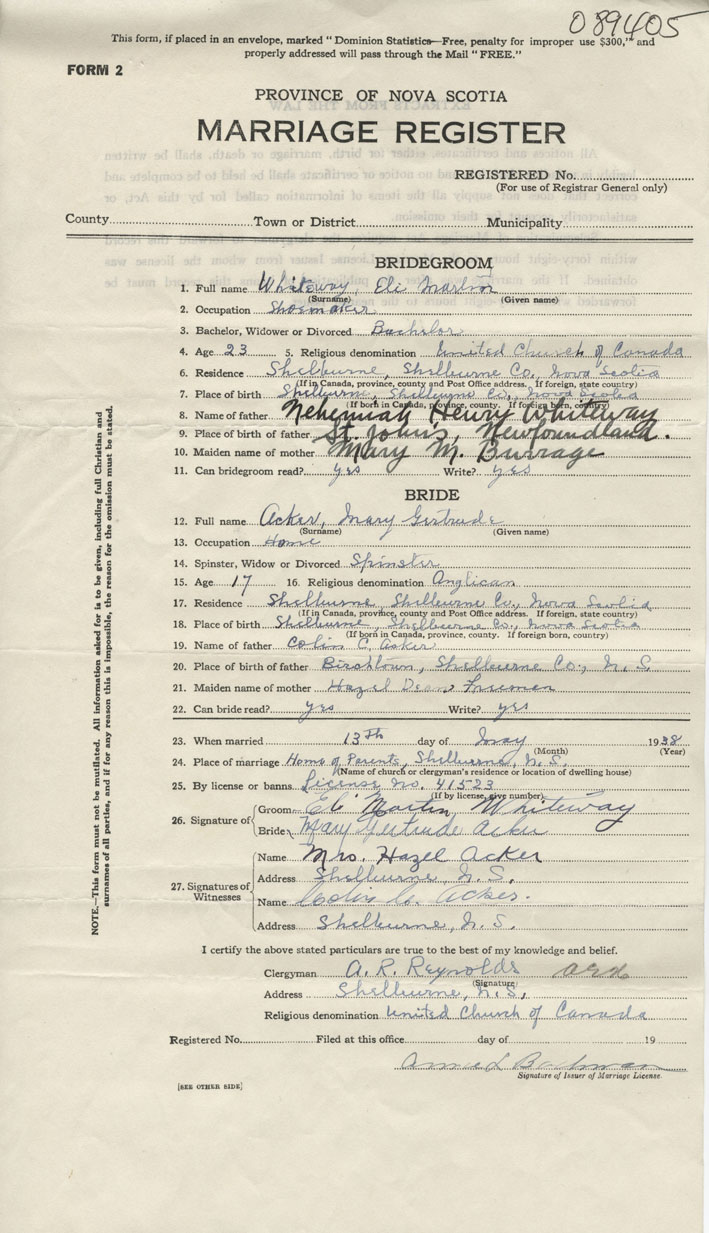 089405
This form, if placed in an envelope, marked "Dominion Statistics—Free, penalty for improper use $300," and
properly addressed will pass through the Mail "FREE."
FORM 2
PROVINCE OF NOVA SCOTIA
MARRIAGE REGISTER
REGISTERED No.
(For use of Registrar General only)
County Town or District Municipality
BRIDEGROOM
1. Full name Whiteway, Eli Martin
(Surname) (Given name)
2. Occupation Shoemaker
3. Bachelor, Widower or Divorced Bachelor
4. Age 23 5. Religious denomination United Church of Canada
6. Residence Shelburne, Shelburne Co., Nova Scotia
(If in Canada, province, county and Post Office address. If foreign, state country)
7. Place of birth Shelburne, Shelburne Co., Nova Scotia
(If born in Canada, province, county. If foreign born, country)
8. Name of father Nehemiah Henry Whiteway
9. Place of birth of father St. John's, Newfoundland.
10. Maiden name of mother Mary M. Burrage
11. Can bridegroom read? yes Write? yes
BRIDE
12. Full name Acker, Mary Gertrude
(Surname) (Given name)
13. Occupation Home
14. Spinster, Widow or Divorced Spinster
15. Age 17 16. Religious denomination Anglican
17. Residence Shelburne, Shelburne Co., Nova Scotia
(If in Canada, province, county and Post Office address. If foreign, state country)
18. Place of birth Shelburne, Shelburne Co., Nova Scotia
(If born in Canada, province, county. If foreign born, country)
19. Name of father Colin C. Acker
20. Place of birth of father Birchtown, Shelburne Co., N. S.
21. Maiden name of mother Hazel Freeman
22. Can bride read? yes Write? yes
23. When married 13th day of May 1938
(Month) (Year)
24. Place of marriage Home of Parents, Shelburne, N. S.
(Name of church or clergyman's residence or location of dwelling house)
25. By license or banns License No. 41523
(If by license, give number)
26. Signature of Groom Eli Martin Whiteway
Bride Mary Gertrude Acker
27. Signatures of Witnesses
Name Mrs. Hazel Acker
Address Shelburne, N. S.
Name Colin C. Acker.
Address Shelburne, N. S.
I certify the above stated particulars are true to the best of my knowledge and belief.
Clergyman A. R. Reynolds
(Signature)
Address Shelburne, N. S.
Religious denomination United Church of Canada
Registered No. Filed at this office day of 19
Signature of Issuer of Marriage License.
[SEE OTHER SIDE]
NOTE.—This form must not be mutilated. All information asked for is to be given, including full Christian and
surnames of all parties, and if for any reason this is impossible, the reason for the omission must be stated.